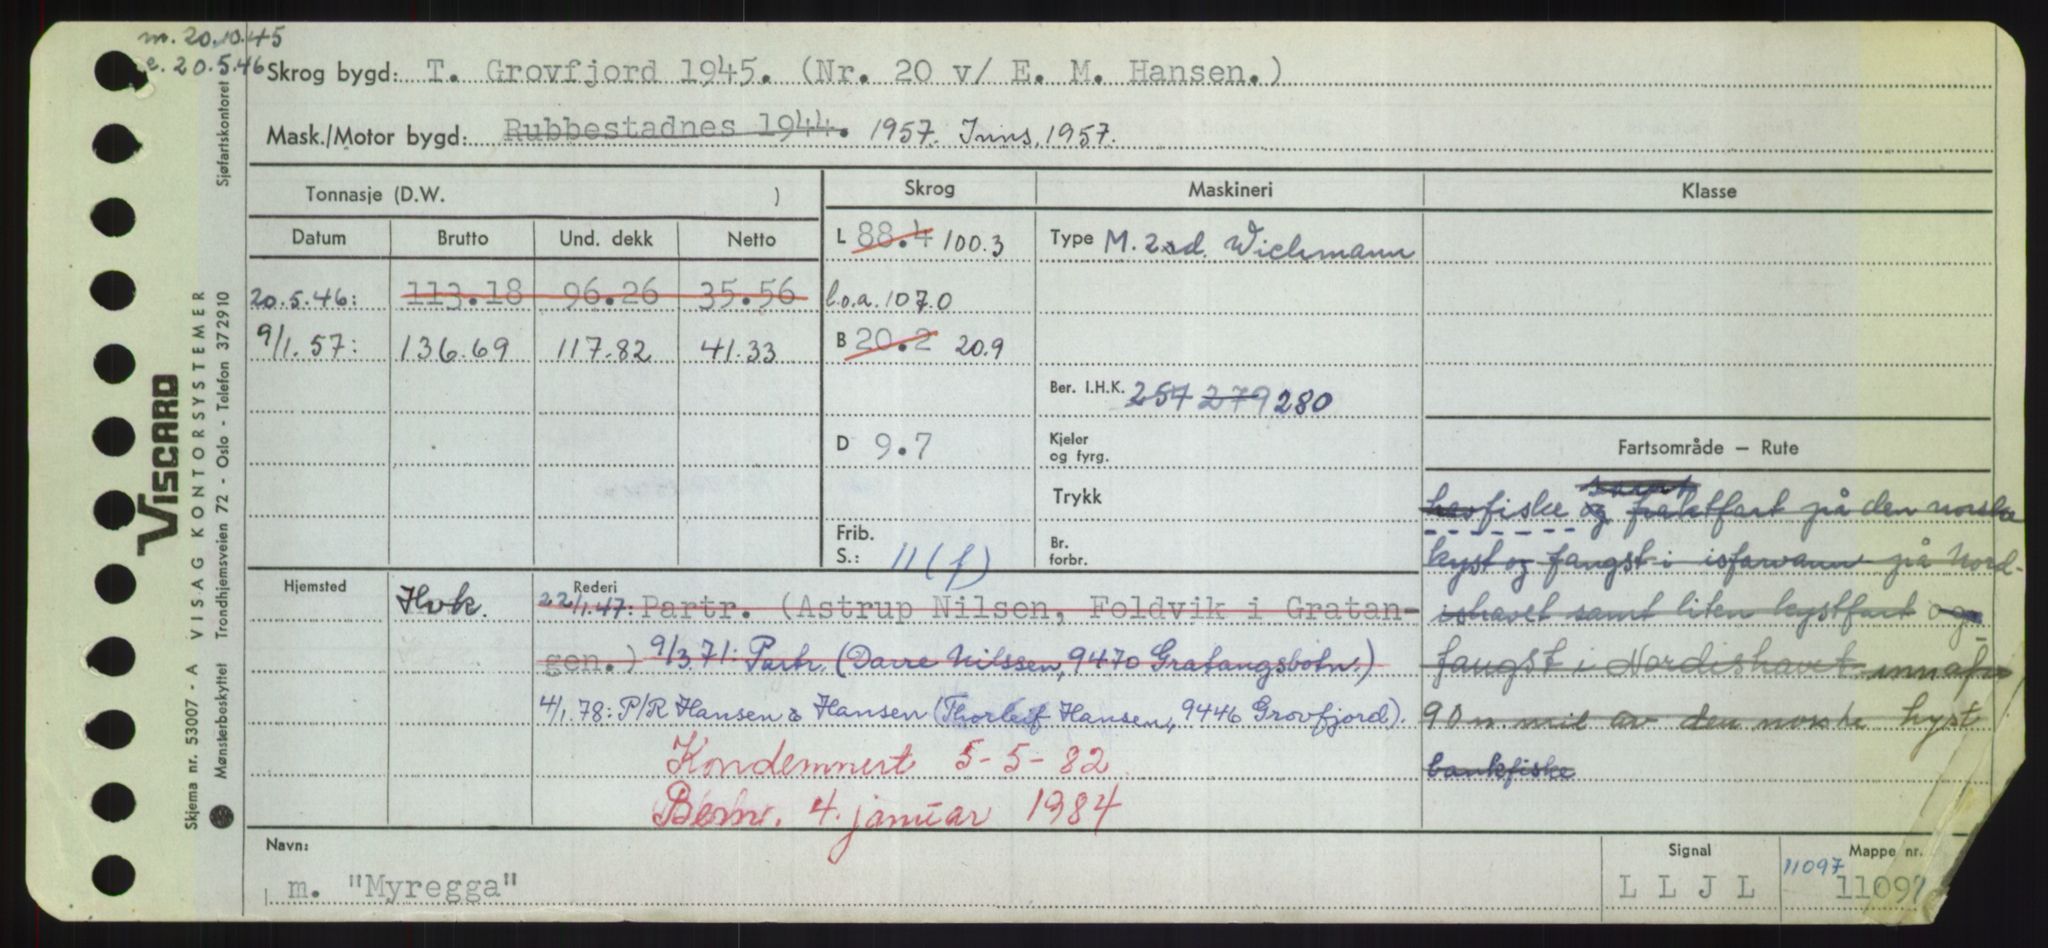 m. 20.10.45
e. 20.5.46
Skrog bygd: T. Grovfjord 1945. (Nr. 20 v/ E. M. Hansen.)
Mask./Motor bygd: Rubbestadnes 1944. 1957. Inns. 1957.
Tonnasje (D.W. )
Skrog
Maskineri
Klasse
Datum Brutto Und. dekk Netto
L 88.4 100.3
Type M. 2sd. Wichmann
20.5.46: 113.18 96.26 35.56
l.o.a. 107.0
9/1.57: 136.69 117.82 41.33
B 20.2 20.9
Ber. I.H.K. 257 279 280
D 9.7
Kjeler og fyrg.
Trykk
Frib. S.: 11 (f)
Br. forbr.
Fartsområde — Rute
samt
havfiske og fraktfart på den norske
kyst og fangst i isfarvann på Nord-
ishavet samt liten kystfart og
fangst i Nordishavet innafor
90 n. mil av den norske kyst
bankfiske
Hjemsted Hvk.
Rederi
22/1.47: Partr. (Astrup Nilsen, Foldvik i Gratan-
gen.) 9/3.71: Partr. (Darre Nilssen, 9470 Gratangsbotn.)
4/1.78: P/R Hansen & Hansen (Thorleif Hansen, 9446 Grovfjord).
Kondemnert 5-5-82
4. januar 1984
Navn:
m. "Myregga"
Signal
L L J L
Mappe nr.
11097
11097
VISCARD
VISAG KONTORSYSTEMER
Skjema nr. 53007 - A
Mønsterbeskyttet Trondhjemsveien 72 - Oslo - Telefon 372910
Sjøfartskontoret